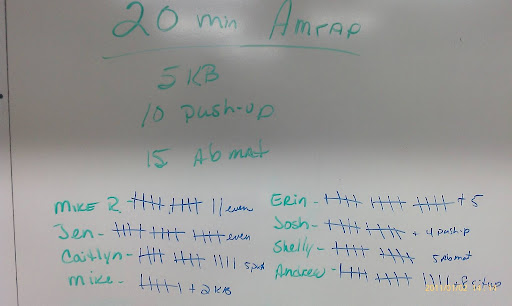 20 min Amrap
5 KB
10 push-up
15 Abmat
Mike R. - |||| |||| || even
Jen - |||| |||| |||| even
Caitlyn - |||| |||| ||||
Mike - |||| + 2 KB
Erin - |||| |||| |||| + 5
Josh - |||| |||| + 4 push-p
Shelly - |||| |||| 5 abmat
Andrew - |||| |||| ||||